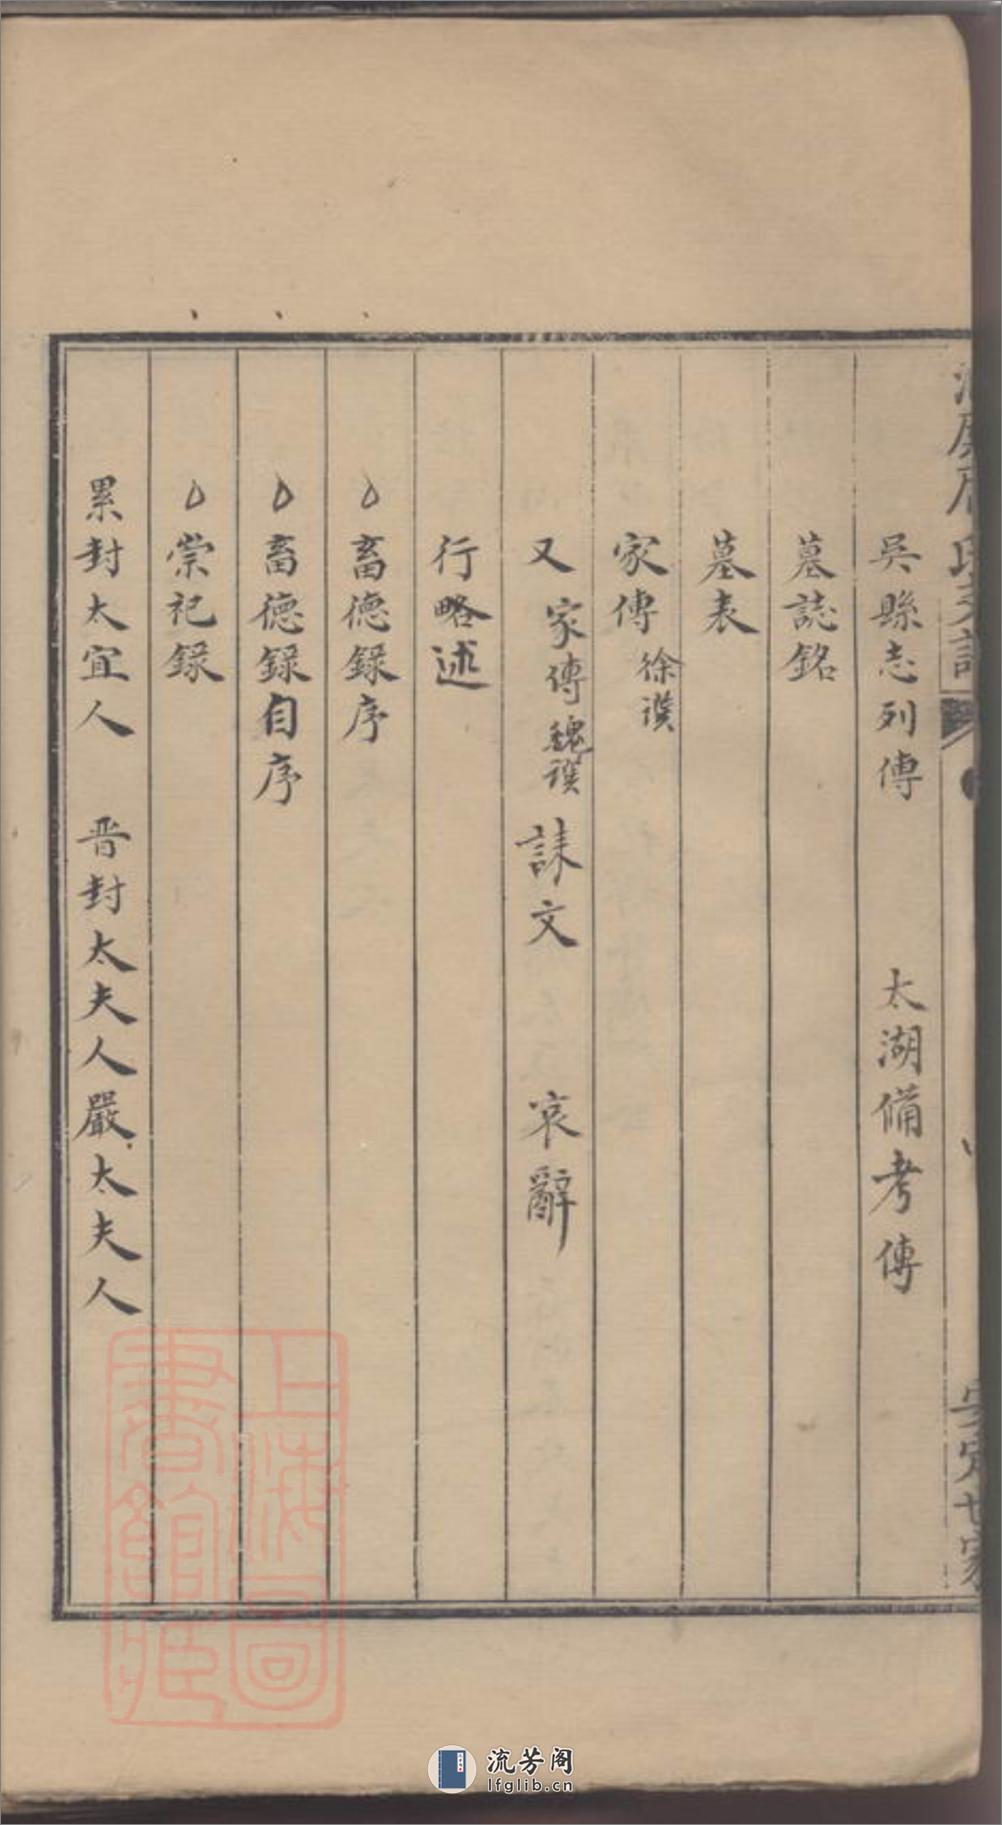 吳縣志列傳　太湖備考傳
墓誌銘
墓表
家傳 徐譔
又 家傳 魏譔 誄文　哀辭
行略述
畜德錄序
畜德錄自序
崇祀錄
累封太宜人　晉封太夫人嚴太夫人
安定世家
上海圖書館藏
流芳阁
lfglib.cn